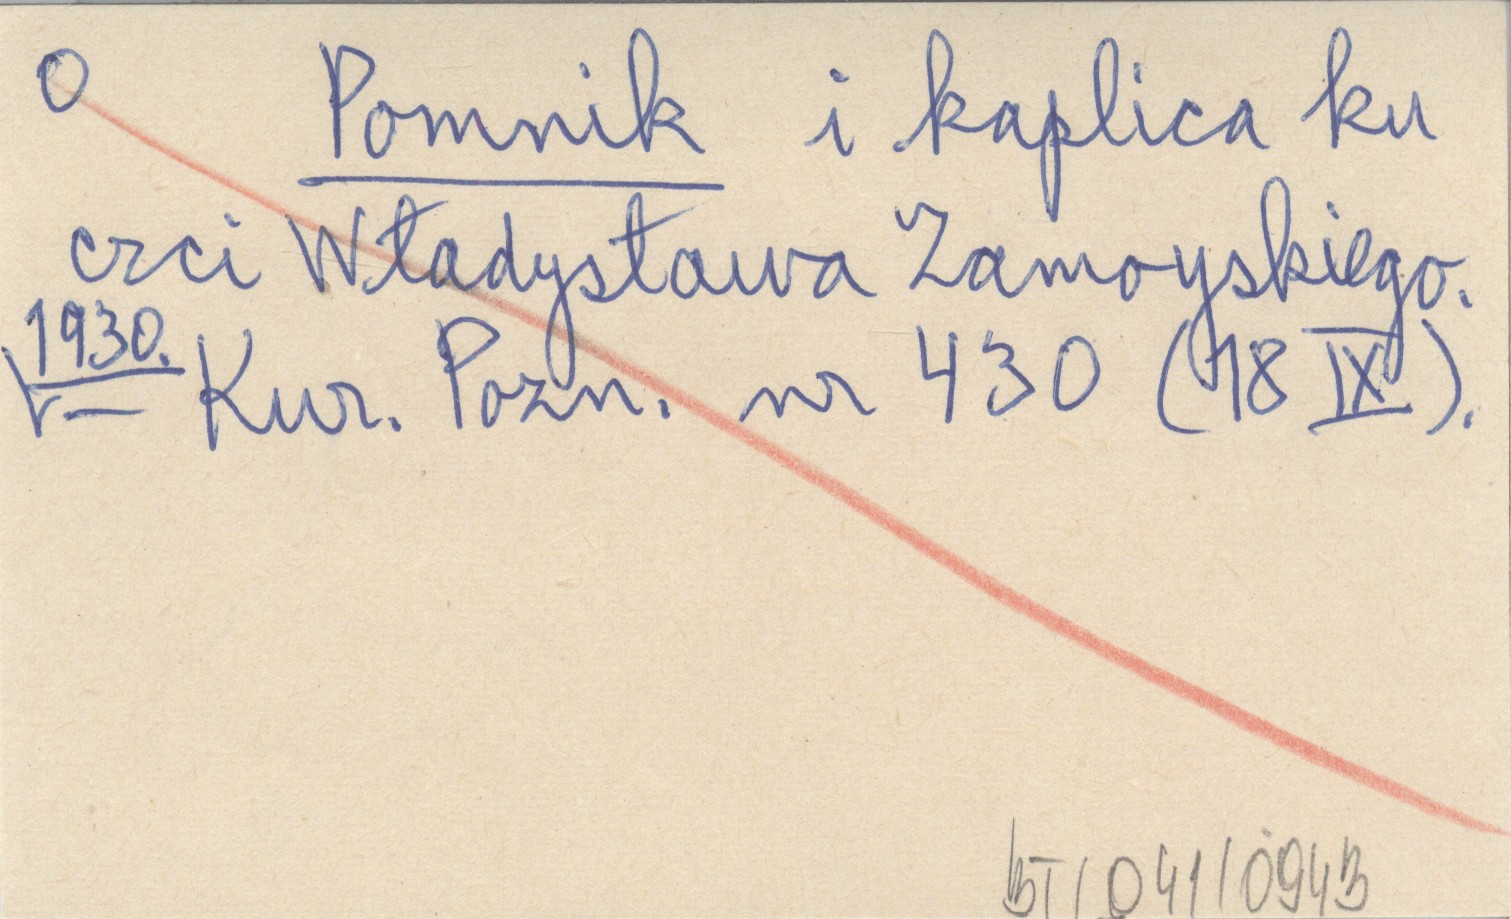 O Pomnik i kaplica ku
czci Władysława Zamoyskiego.
1930. Kur. Pozn. nr 430 (18 IX).
BT/041/0943